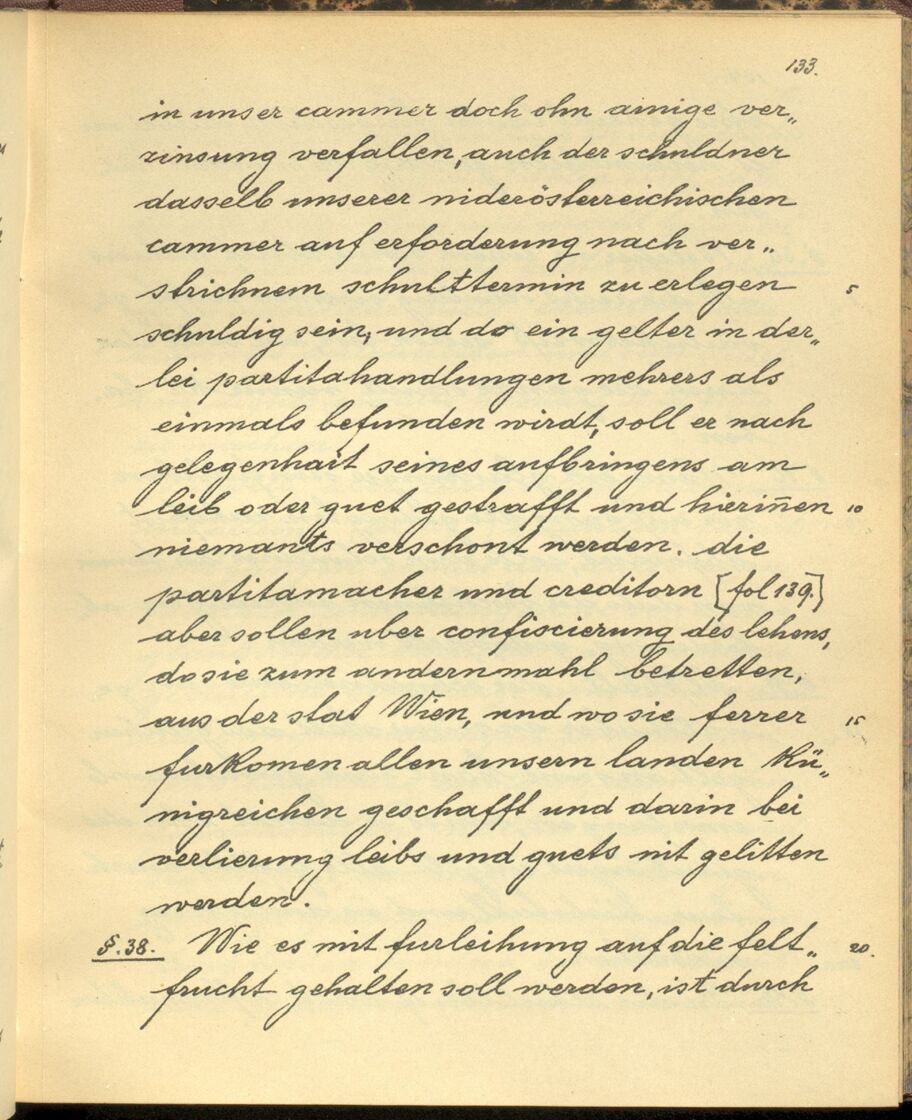 133.
in unser cammer doch ohn ainige ver„
zinsung verfallen, auch der schuldner
dasselb unserer niderösterreichischen
cammer auf erforderung nach ver„
strichnem schulttermin zu erlegen 5
schuldig sein, und do ein gelter in der„
lei partitahandlungen mehrers als
einmals befunden wirdt, soll er nach
gelegenhait seines aufbringens am
leib oder guet gestrafft und hierin̄en 10
niemants verschont werden. die
partitamacher und creditorn [fol 139.]
aber sollen uber confiscierung des lehens,
do sie zum andernmahl betretten,
aus der stat Wien, und wo sie ferrer 15
furkomen allen unsern landen kü„
nigreichen geschafft und darin bei
verlierung leibs und guets nit gelitten
werden.
§.38. Wie es mit furleihung auf die felt„ 20.
frucht gehalten soll werden, ist durch